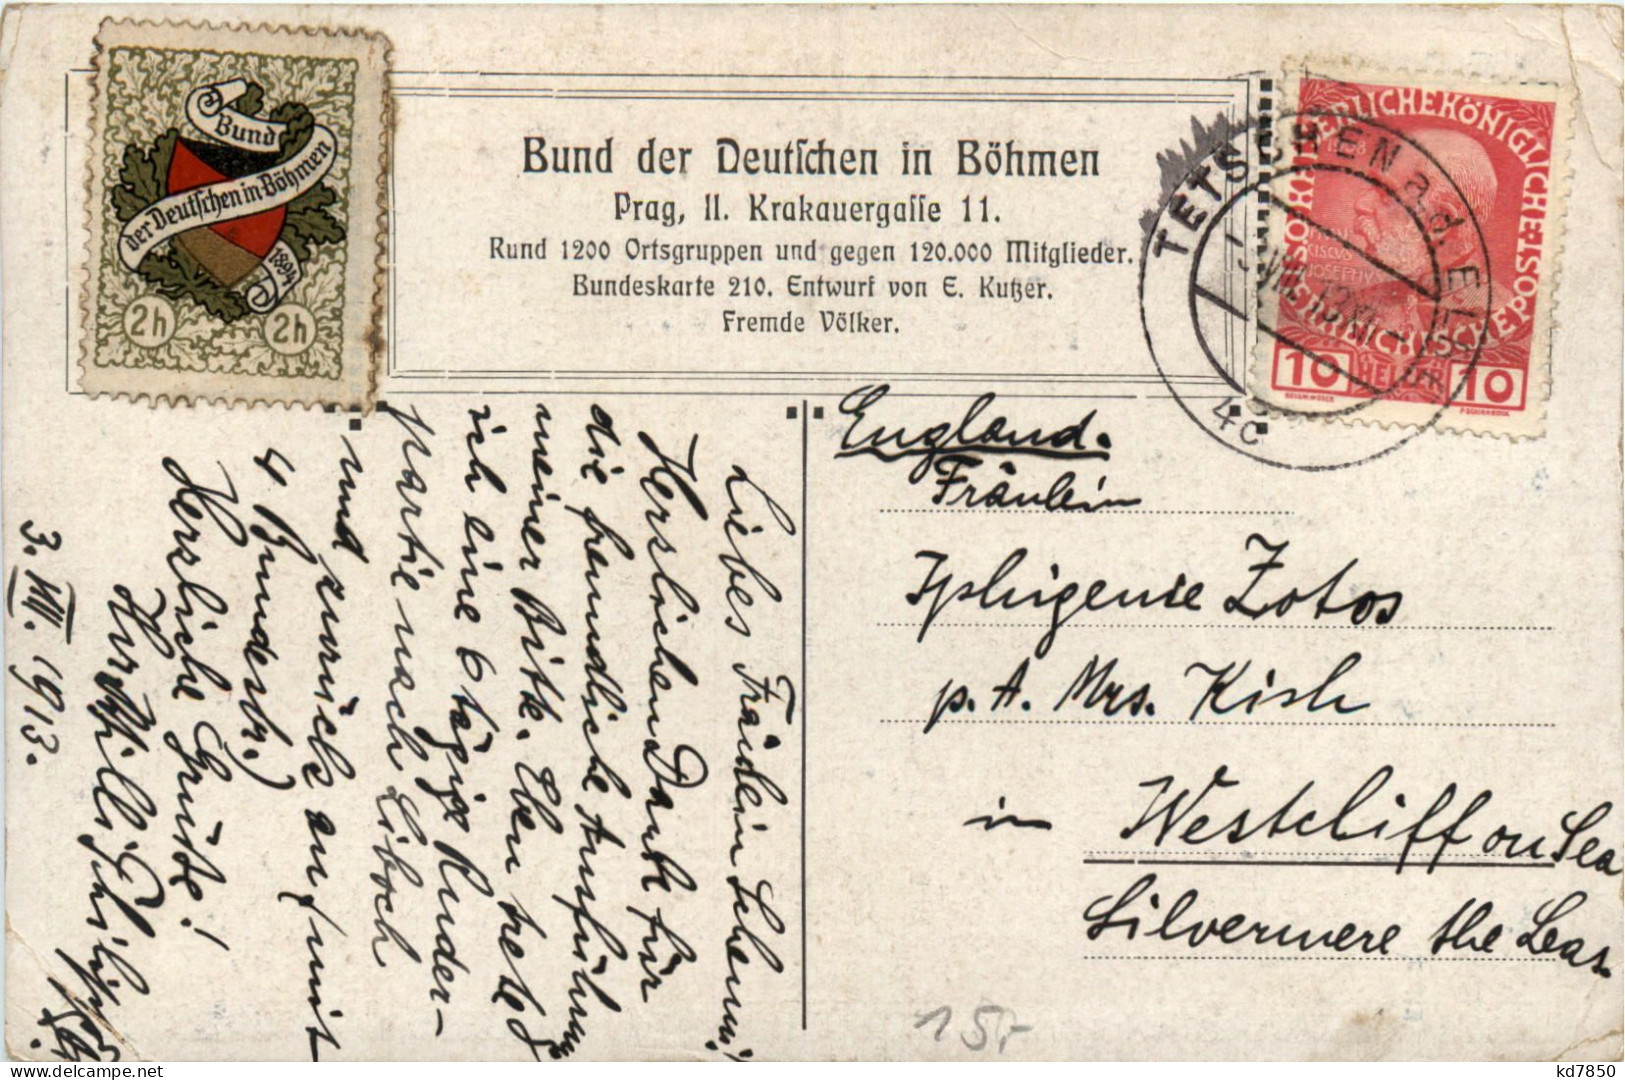 Bund
der Deutschen in Böhmen
1894
2h 2h
Bund der Deutschen in Böhmen
Prag, II. Krakauergasse 11.
Rund 1200 Ortsgruppen und gegen 120.000 Mitglieder.
Bundeskarte 210. Entwurf von E. Kutzer.
Fremde Völker.
TETSCHEN a.d. ELBE
4c
10 HELLER 10
England.
Fräulein
Iphigenie Zotos
p. A. Mrs. Kish
in Westcliff on Sea
Silvermere the Leas
Liebes Fräulein
Herzlichen Dank für
die freundliche Ausführung
meiner Bitte. Eben trete
ich eine 6 tägige Ruder-
partie nach Liboch
und zurück an (mit
4 Rudern.)
Herzliche Grüße!
3. VIII. 1913.
15,-
kd7850